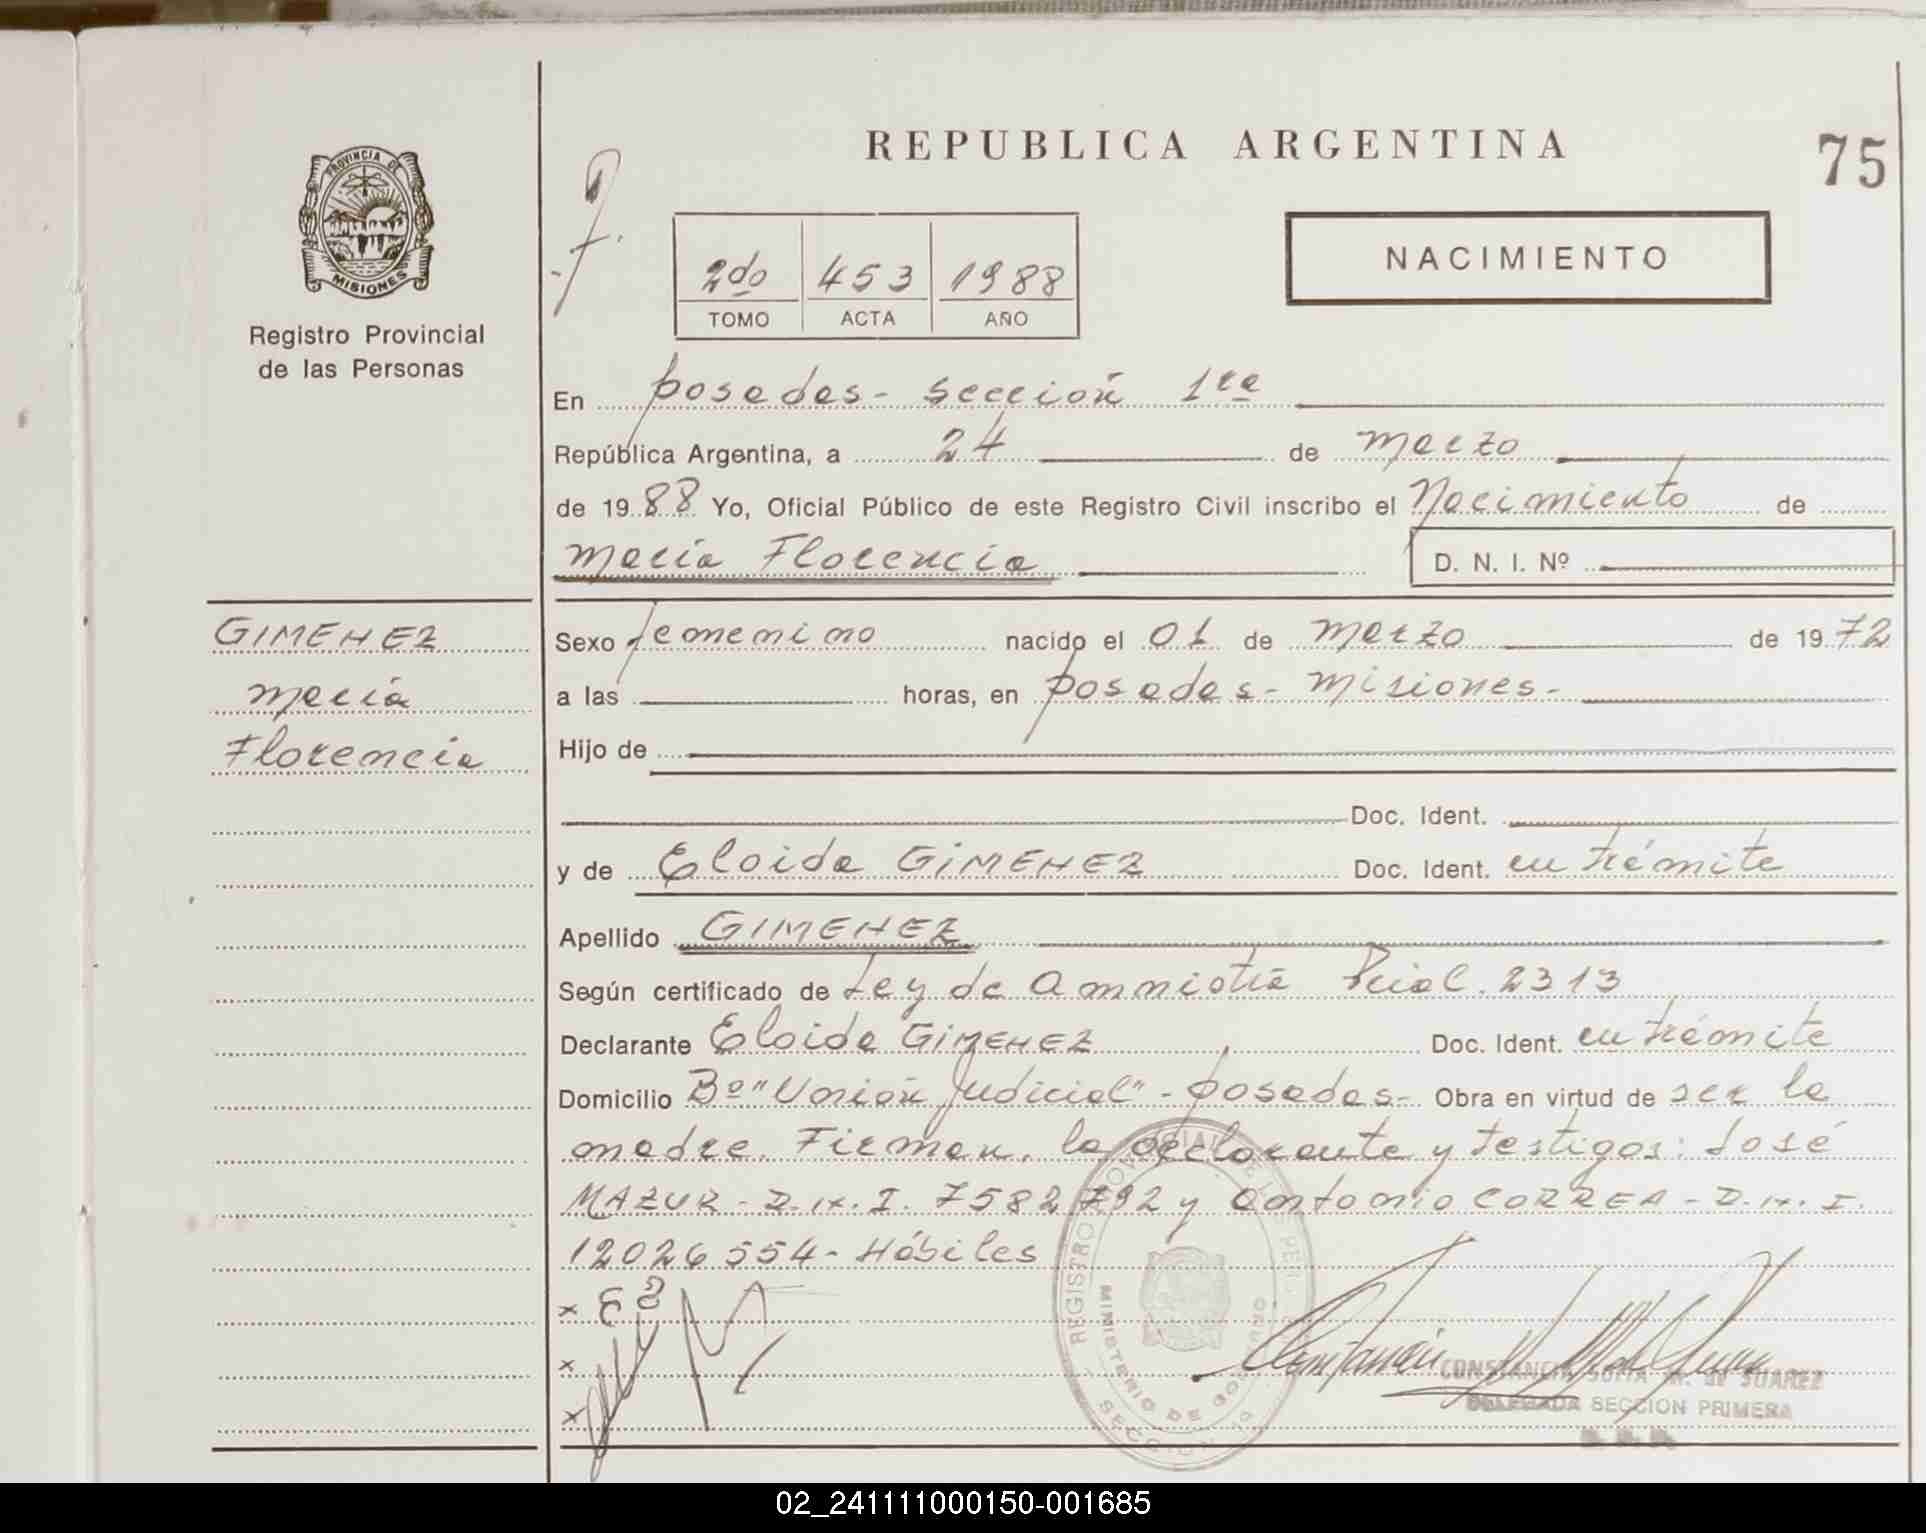 REPUBLICA ARGENTINA
75
PROVINCIA DE
MISIONES
Registro Provincial
de las Personas
2do 453 1988
TOMO ACTA AÑO
NACIMIENTO
En Posadas - Sección 1ra
República Argentina, a 24 de Marzo
de 1988 Yo, Oficial Público de este Registro Civil inscribo el Nacimiento de
María Florencia D. N. I. Nº
GIMENEZ
María
Florencia
Sexo femenino nacido el 01 de Marzo de 1972
a las horas, en Posadas - Misiones -
Hijo de
Doc. Ident.
y de Eloida GIMENEZ Doc. Ident. en trámite
Apellido GIMENEZ
Según certificado de Ley de Amnistía Pcial. 2313
Declarante Eloida GIMENEZ Doc. Ident. en trámite
Domicilio Bº "Unión Judicial" - Posadas - Obra en virtud de ser la
madre. Firman, la declarante y testigos: José
MAZUR - D.N.I. 7582792 y Antonio CORREA - D.N.I.
12026554 - Hábiles
REGISTRO PROVINCIAL DE LAS PER
MINISTERIO DE GOBIERNO
CONSTANCIA SOFIA M. de SUAREZ
DELEGADA SECCION PRIMERA
02_241111000150-001685